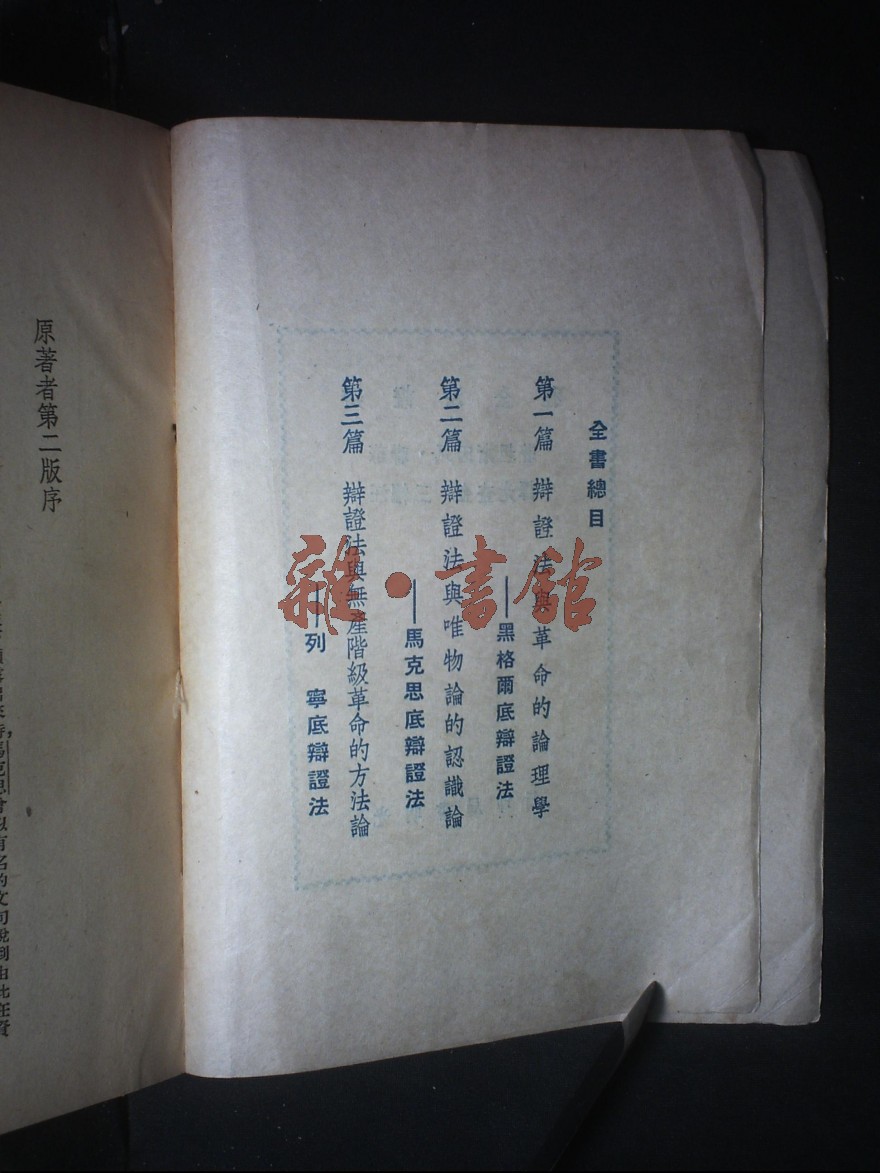 全書總目
第一篇 辯證法與革命的論理學
——黑格爾底辯證法
第二篇 辯證法與唯物論的認識論
——馬克思底辯證法
第三篇 辯證法與無產階級革命的方法論
——列寧底辯證法
原著者第二版序
有名的文句說到由此在資
雜·書館